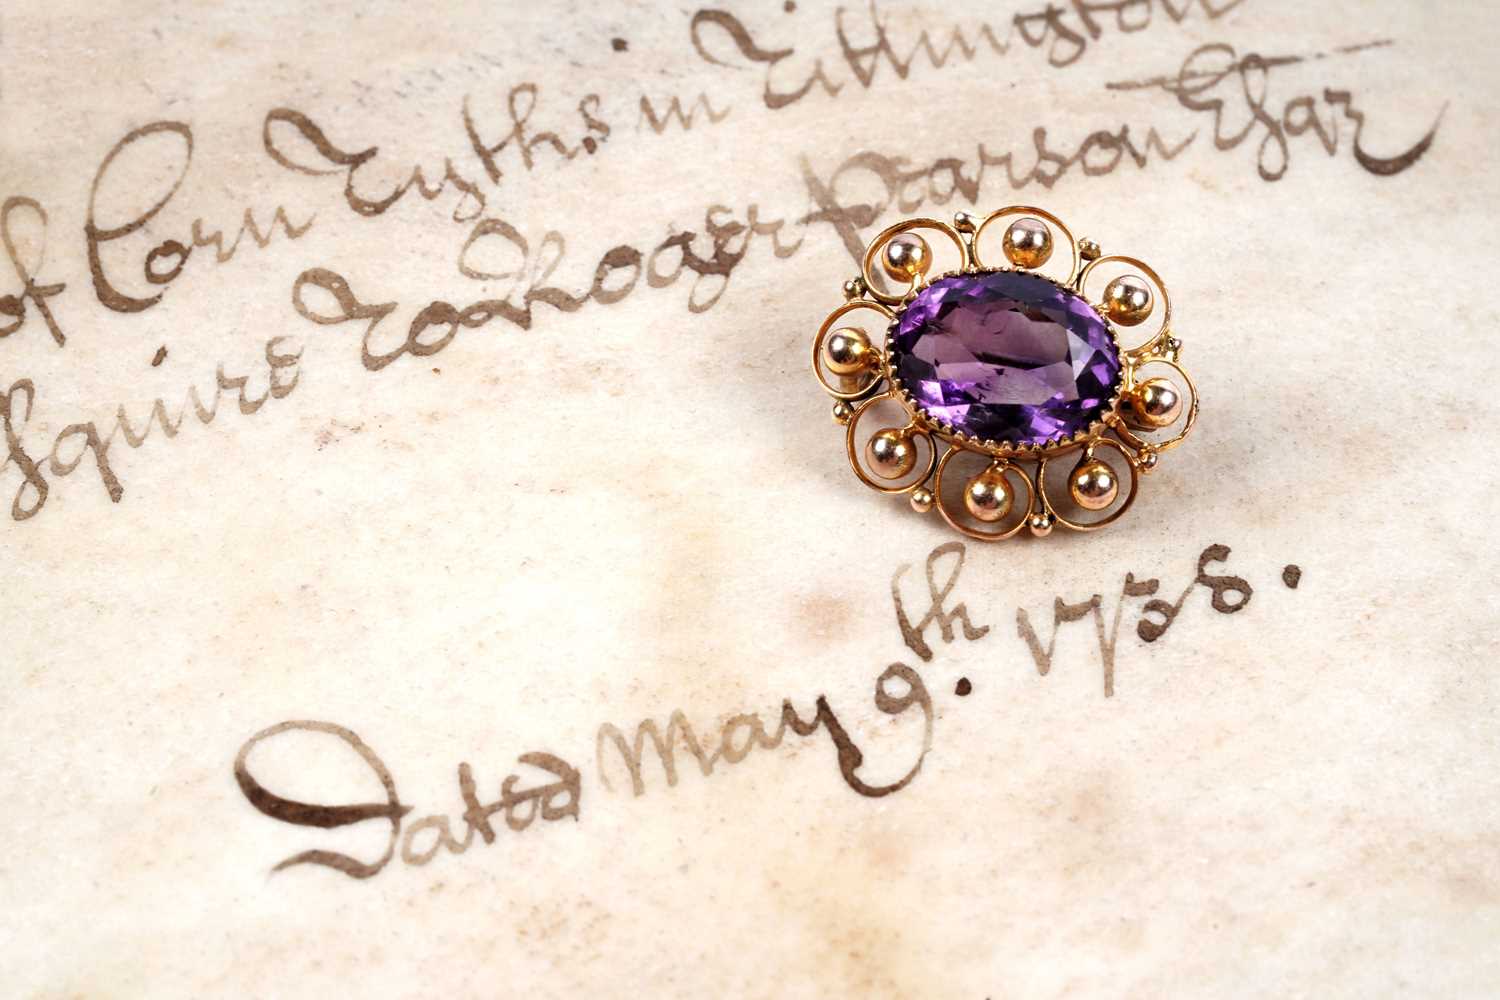 of Corn Tyths in Tillington
Esquire To Roger Pearson Esqr
Dated May 9th. 1738.